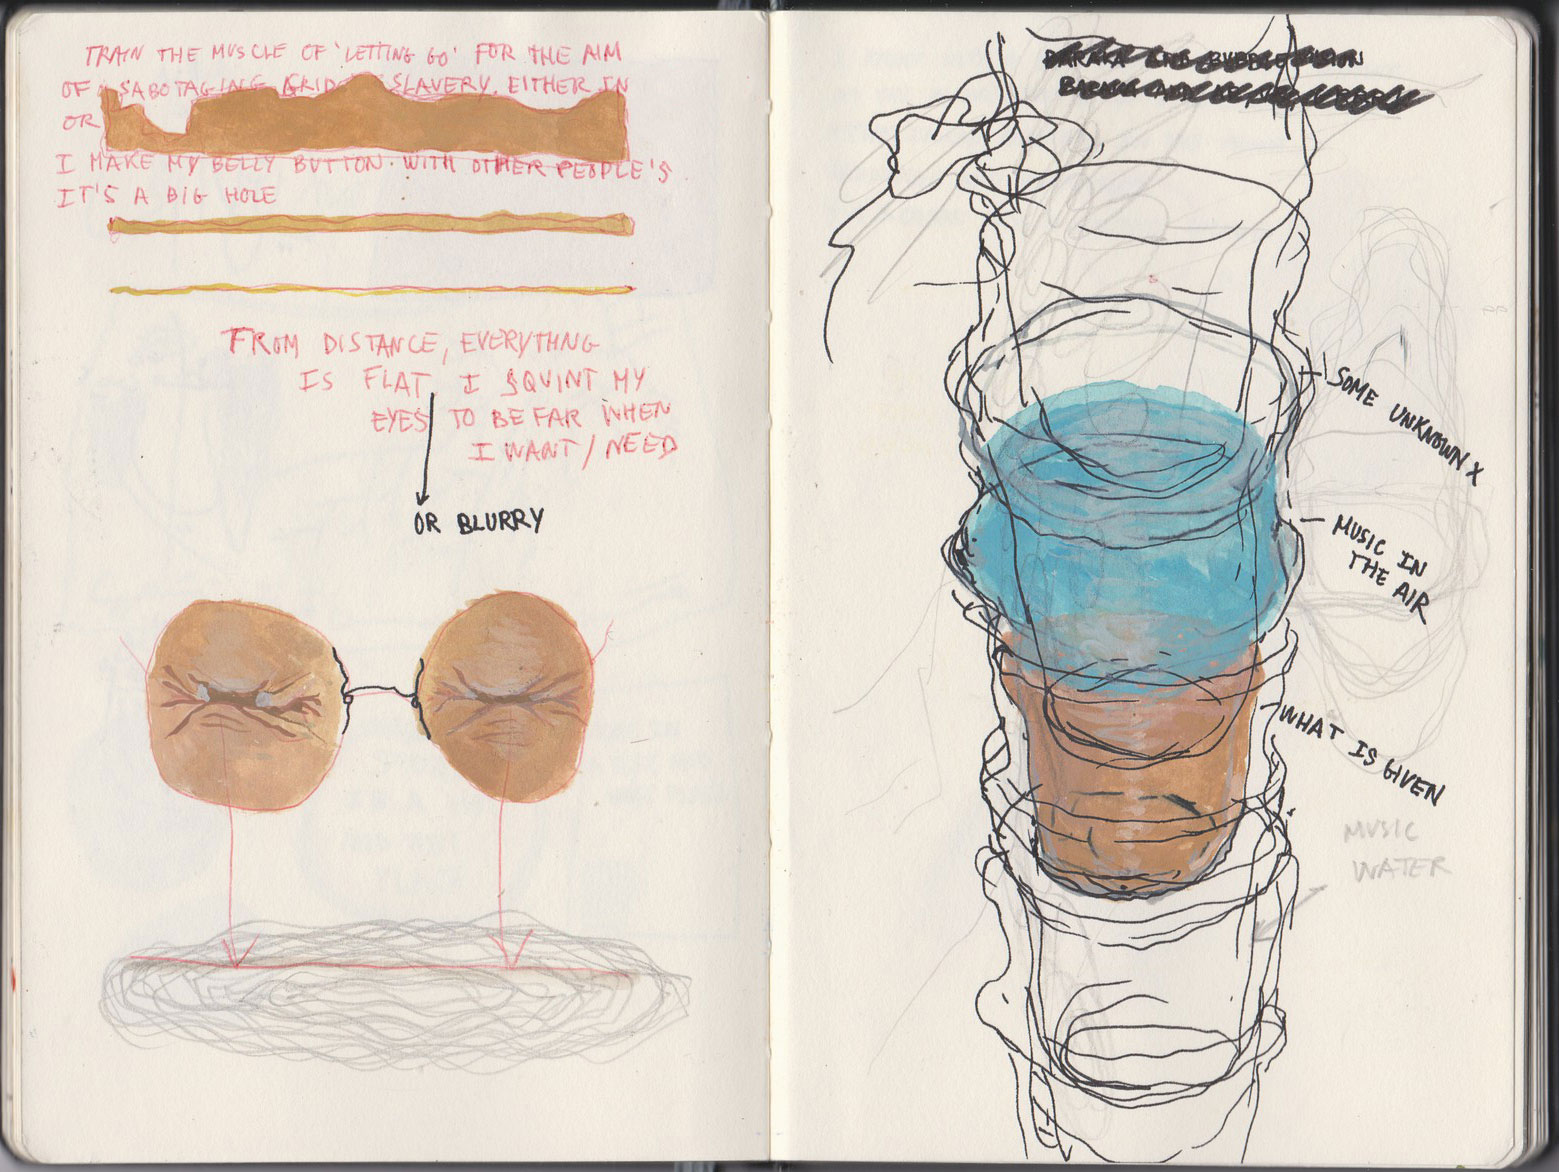 TRAIN THE MUSCLE OF 'LETTING GO' FOR THE AIM
OF SABOTAGING GRID SLAVERY. EITHER IN
OR
I MAKE MY BELLY BUTTON. WITH OTHER PEOPLE'S
IT'S A BIG HOLE
FROM DISTANCE, EVERYTHNG
IS FLAT, I SQUINT MY
EYES TO BE FAR WHEN
I WANT / NEED
OR BLURRY
SOME UNKNOWN X
MUSIC IN
THE AIR
WHAT IS GIVEN
MUSIC
WATER